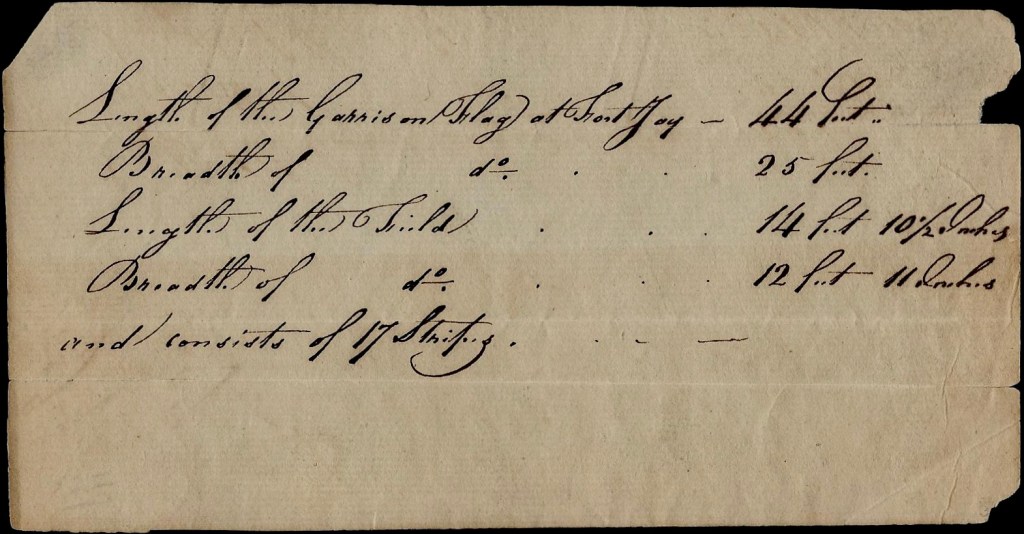 Length of the Garrison Flag at Fort Jay — 44 feet..
Breadth of do. . . 25 feet.
Length of the Field . . . 14 feet 10 1/2 Inches
Breadth of do. . . . 12 feet 11 Inches
and consists of 17 Stripes . . - —